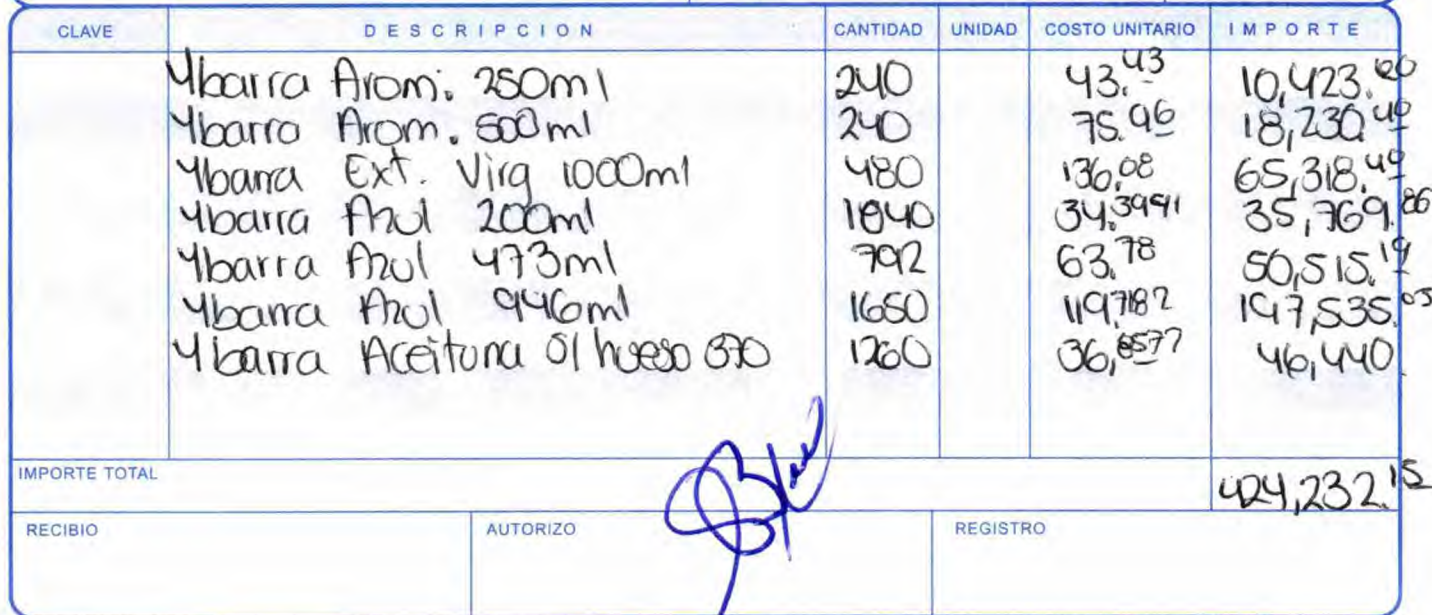 CLAVE DESCRIPCION CANTIDAD UNIDAD COSTO UNITARIO IMPORTE
Ybarra Arom. 250ml 240 43.43 10,423.20
Ybarra Arom. 500ml 240 75.96 18,230.40
Ybarra Ext. Virg 1000ml 480 136.08 65,318.49
Ybarra Azul 200ml 1040 34.3941 35,769.86
Ybarra Azul 473ml 792 63.78 50,515.19
Ybarra Azul 946ml 1650 119.7182 197,535.03
Ybarra Aceituna S/ hueso 370 1260 36,8577 46,440.
IMPORTE TOTAL 424,232.15
RECIBIO AUTORIZO REGISTRO